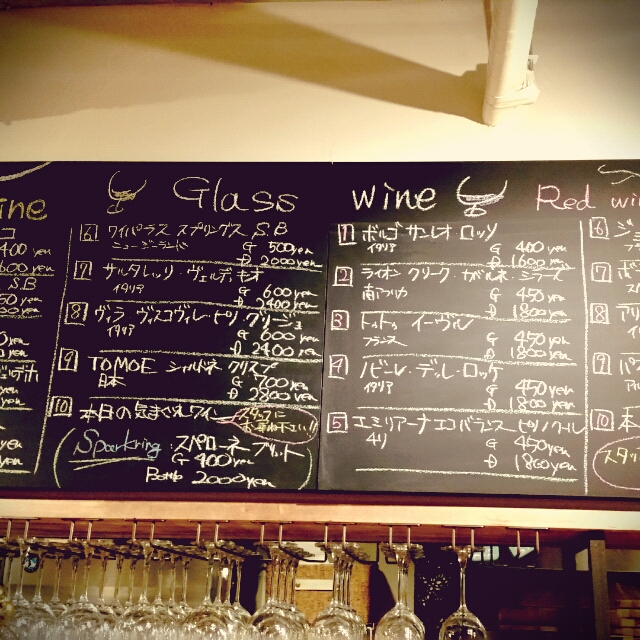 ine
Glass
wine
Red wi
6 ワイパラス スプリングス SB
ニュージーランド
G 500yen
D 2000yen
7 サルタレッリ・ヴェルディキオ
イタリア
G 600yen
D 2400yen
8 ヴィラ ヴィスコヴィレ・ピノ グリージョ
イタリア
G 600yen
D 2400yen
9 TOMOE シャルドネ クリスプ
日本
G 700yen
D 2800yen
10 本日の気まぐれワイン
スタッフに
お尋ね下さい!
Sparkring スパローネ ブリュット
G 400yen
Bottle 2000yen
1 ボルゴ サンレオ ロッソ
イタリア
G 400yen
D 1600yen
2 ライオン クリーク・カベルネ・シラーズ
南アフリカ
G 450yen
D 1800yen
3 トゥトゥ イーヴレ
フランス
G 450yen
D 1800yen
4 ノビーレ・デッレ・ロッケ
イタリア
G 450yen
D 1800yen
5 エミリアーナ エコバランス ピノノワール
チリ
G 450yen
D 1800yen
400yen
600yen
SB
6
7
8
9
10
スタッ